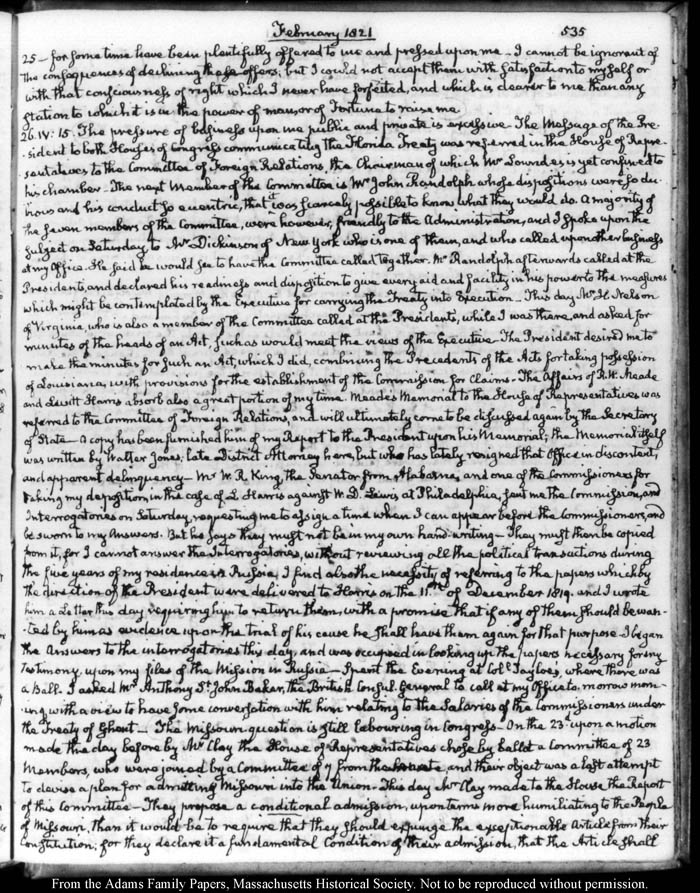 February 1821
535
25 — for some time have been plentifully offered to me and pressed upon me — I cannot be ignorant of
the consequences of declining these offers; but I could not accept them with satisfaction to myself or
with that consciousness of right which I never have forfeited, and which is dearer to me than any
station to which it is in the power of man, or of Fortune to raise me.
26. IV: 15. The pressure of business upon me public and private is excessive — The Message of the Pre-
-sident to both Houses of Congress communicating the Florida Treaty was referred in the House of Repre-
-sentatives to the Committee of Foreign Relations, the Chairman of which Mr Lowndes is yet confined to
his chamber — The next Member of the Committee is Mr John Randolph whose dispositions were so du-
-bious and his conduct so eccentric, that it was scarcely possible to know what they would do. A majority of
the seven members of the Committee, were however, friendly to the Administration, and I spoke upon the
subject on Saturday to Mr Dickinson of New York who is one of them, and who called upon other business
at my Office. He said he would see to have the Committee called together. Mr Randolph afterwards called at the
Presidents, and declared his readiness and disposition to give every aid and facility in his power to the measures
which might be contemplated by the Executive for carrying the Treaty into Execution — This day Mr H. Nelson
of Virginia, who is also a member of the Committee called at the Presidents, while I was there, and asked for
minutes of the heads of an Act, such as would meet the views of the Executive — The President desired me to
make the minutes for such an Act, which I did, combining the Precedents of the Acts for taking possession
of Louisiana, with provisions for the establishment of the Commission for Claims — The Affairs of R. W. Meade
and Levitt Harris absorb also a great portion of my time. Meade's Memorial to the House of Representatives was
referred to the Committee of Foreign Relations, and will ultimately come to be discussed again by the Secretary
of State — A copy has been furnished him of my Report to the President upon his Memorial; the Memorial itself
was written by Walter Jones, late District Attorney here, but who has lately resigned that Office in discontent,
and apparent delinquency — Mr W. R. King, the Senator from Alabama, and one of the Commissioners for
taking my deposition, in the case of L. Harris against W. D. Lewis at Philadelphia, sent me the Commission, and
Interrogatories on Saturday, requesting me to assign a time when I can appear before the Commissioners, and
be sworn to my Answers. But he says they must not be in my own hand-writing — They must then be copied
from it, for I cannot answer the Interrogatories, without reviewing all the political transactions during
the five years of my residence in Russia, I find also the necessity of referring to the papers which by
the direction of the President were delivered to Harris on the 11th of December 1819. and I wrote
him a Letter this day requiring him to return them, with a promise that if any of them should be wan-
-ted by him as evidence upon the trial of his cause he shall have them again for that purpose — I began
the Answers to the interrogatories this day, and was occupied in looking up the papers necessary for my
Testimony, upon my files of the Mission in Russia — I spent the Evening at Col. Tayloe's, where there was
a Ball. I asked Mr Anthony St. John Baker, the British Consul-General to call at my Office to-morrow morn-
-ing, with a view to have some conversation with him relating to the Salaries of the Commissioners under
the Treaty of Ghent — The Missouri question is still labouring in Congress — On the 23d upon a motion
made the day before by Mr Clay the House of Representatives chose by ballot a Committee of 23
Members, who were joined by a Committee of 7 from the Senate, and their object was a last attempt
to devise a plan for admitting Missouri into the Union — This day Mr Clay made to the House the Report
of this Committee — They propose a conditional admission, upon terms more humiliating to the People
of Missouri, than it would be to require that they should expunge the exceptionable Article from their
Constitution; for they declare it a fundamental Condition of their admission, that the Article shall
From the Adams Family Papers, Massachusetts Historical Society. Not to be reproduced without permission.